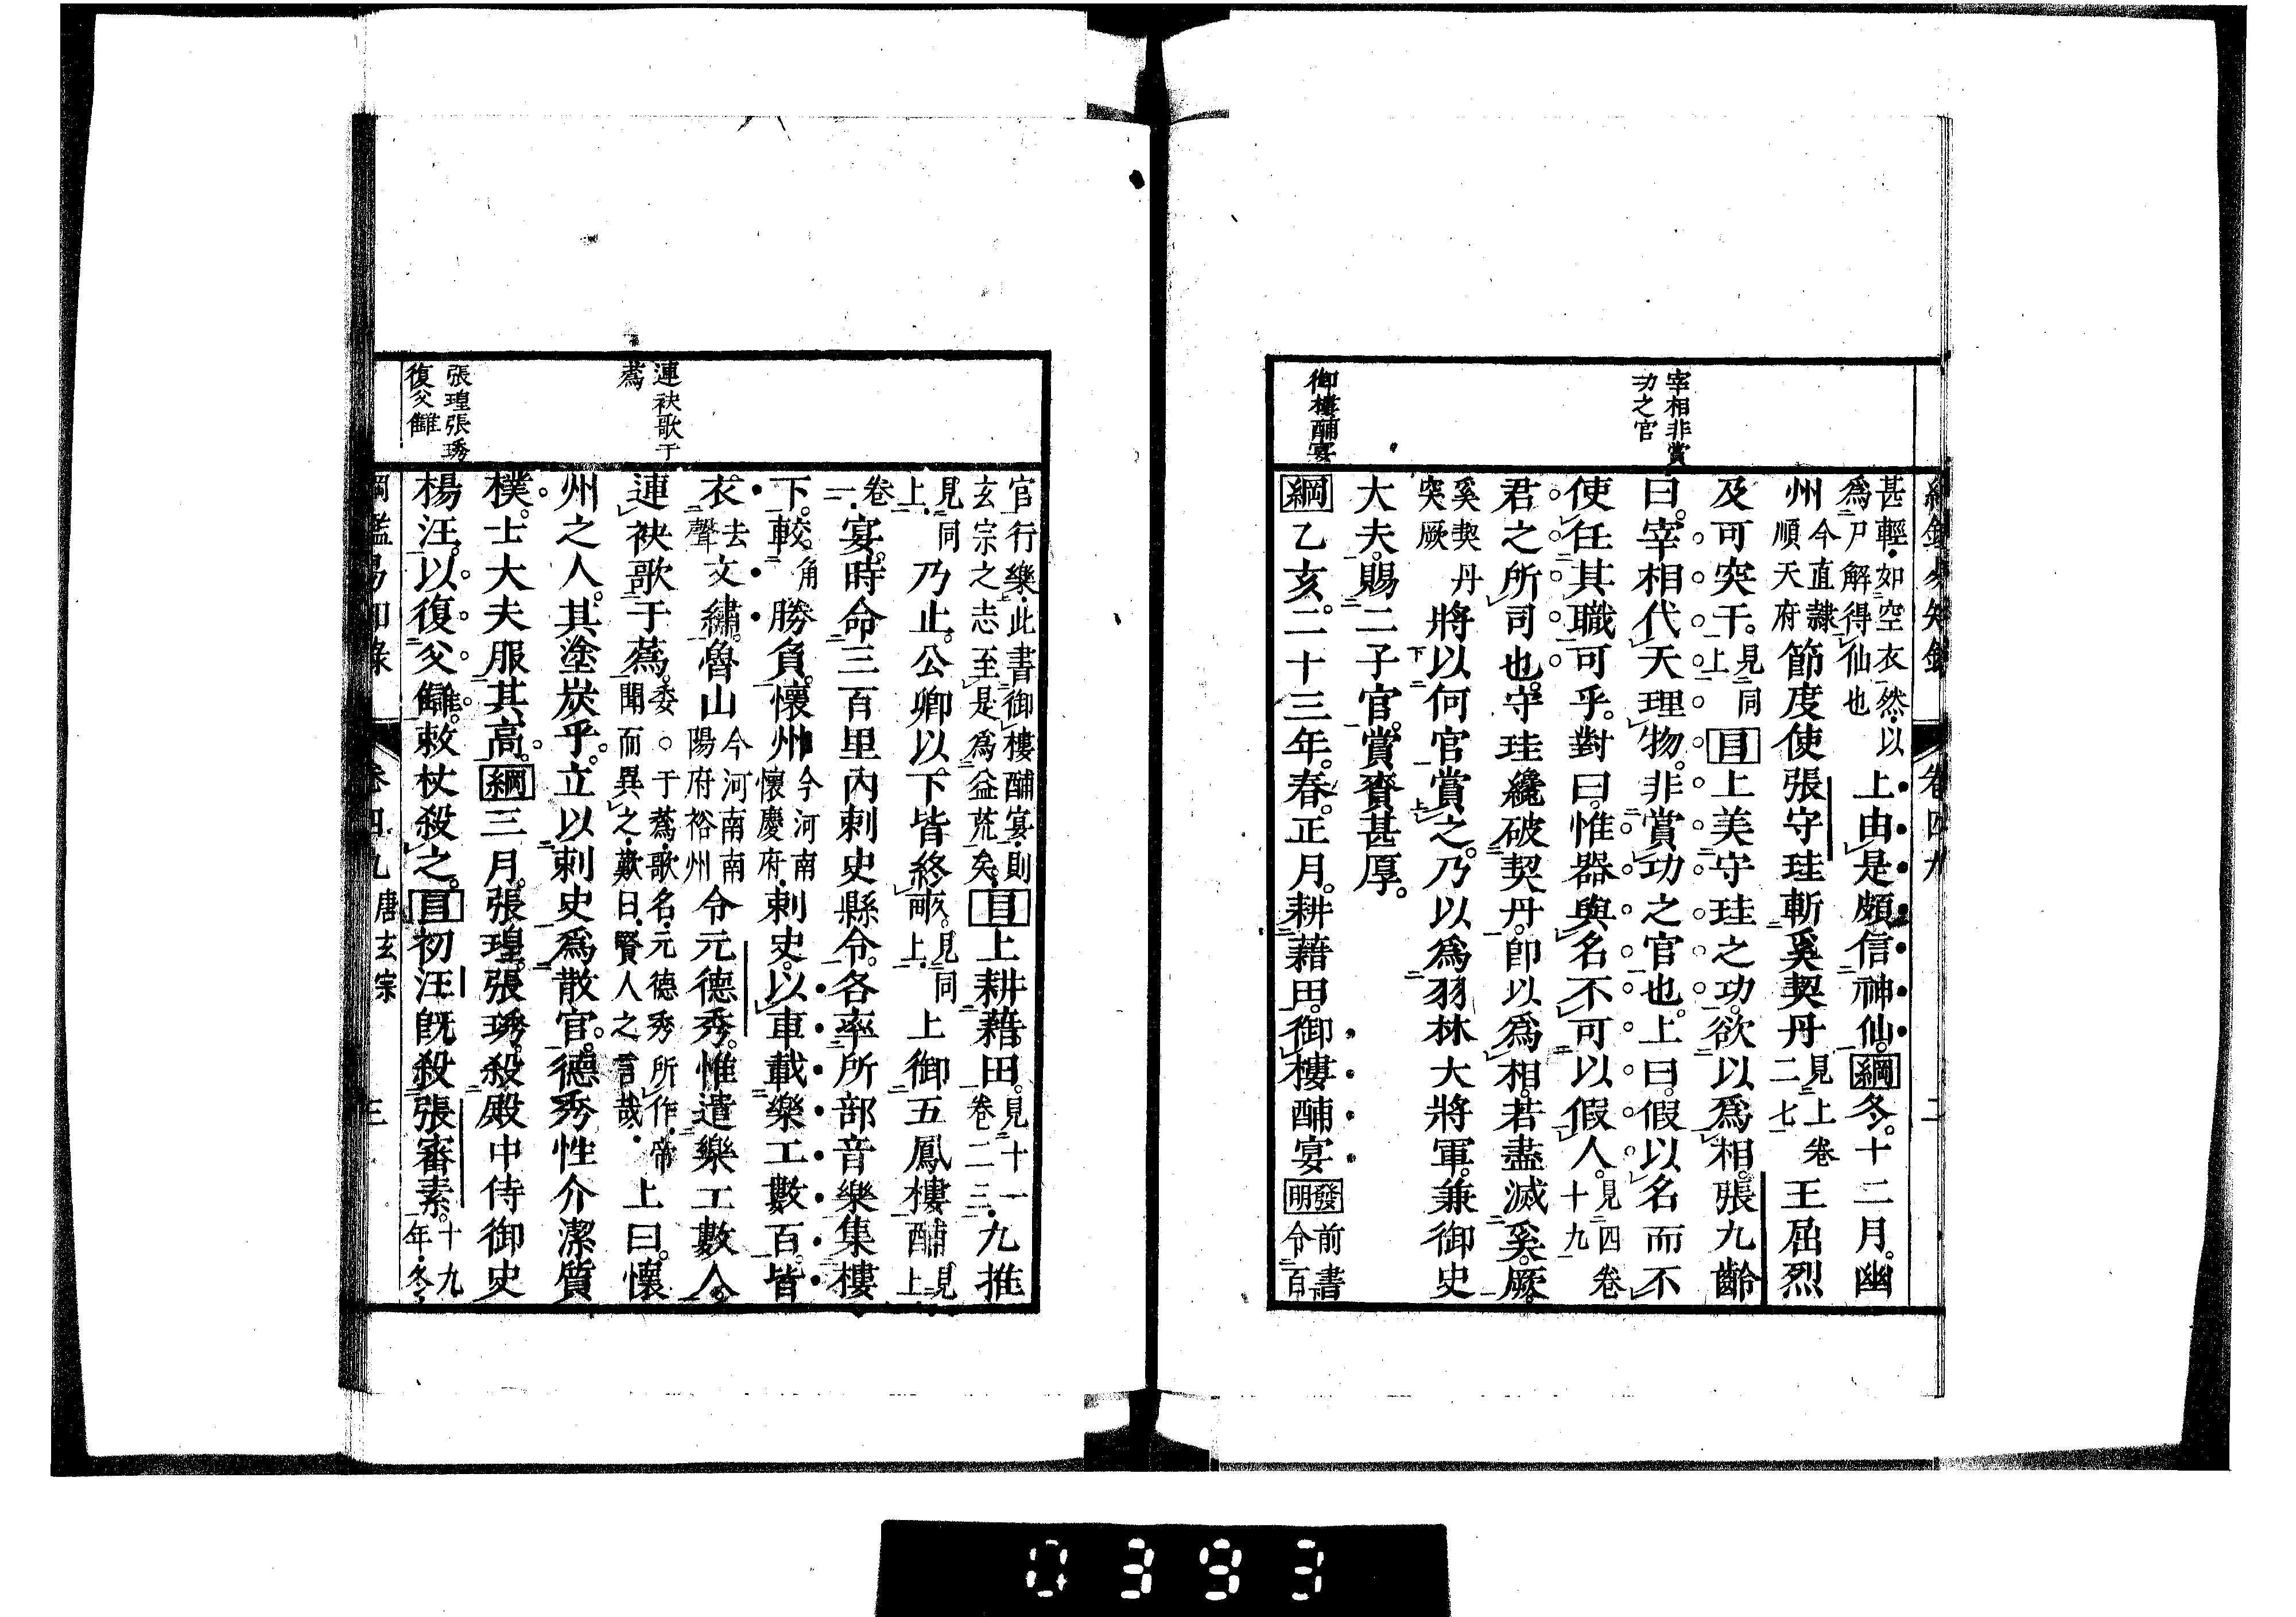 綱鑑易知錄 卷四九 二
宰相非賞
功之官
御樓酺宴
甚輕・如空衣然・以爲尸解得仙也 上由是頗信神仙。綱冬。十二月。幽
州今直隸順天府節度使張守珪斬奚契丹見上卷二七王屈烈
及可突干。見同上目上美守珪之功。欲以爲相。張九齡
曰。宰相代天理物。非賞功之官也。上曰。假以名而不
使任其職可乎。對曰。惟器與名不可以假人。見四卷十九
君之所司也。守珪纔破契丹。卽以爲相。若盡滅奚厥。
奚契丹突厥將以何官賞之。乃以爲羽林大將軍。兼御史
大夫。賜二子官。賞賚甚厚。
綱乙亥。二十三年。春。正月。耕藉田。御樓酺宴發明前書令百
連袂歌于
蔿
張瑝張琇
復父讎
官行樂・此書御樓酺宴・則玄宗之志至是爲益荒矣・目上耕藉田。見十一卷二三・九推
見同上・乃止。公卿以下皆終畝。見同上・上御五鳳樓酺見上
卷一・宴。時命三百里內刺史縣令。各率所部音樂集樓
下。較角勝負。懷州今河南懷慶府・刺史。以車載樂工數百。皆
衣。去聲文繡。魯山今河南南陽府裕州令元德秀。惟遣樂工數人。
連袂歌于蔿。委○于蔿・歌名・元德秀所作・帝聞而異之・歎曰・賢人之言哉・上曰。懷
州之人。其塗炭乎。立以刺史爲散官。德秀性介潔質
樸。士大夫服其高。綱三月。張瑝。張琇。殺殿中侍御史
楊汪。以復父讎。讎。敕杖殺之。目初汪旣殺張審素。十九年・冬・
綱鑑易知錄 卷四九 唐玄宗 三
0393